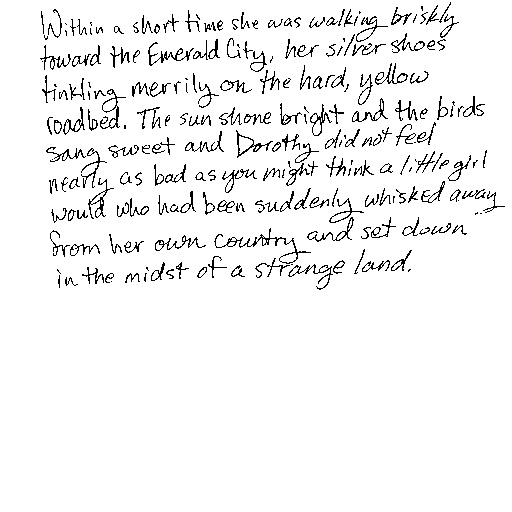 Within a short time she was walking briskly
toward the Emerald City, her silver shoes
tinkling merrily on the hard, yellow
roadbed. The sun shone bright and the birds
sang sweet and Dorothy did not feel
nearly as bad as you might think a little girl
would who had been suddenly whisked away
from her own country and set down
in the midst of a strange land.